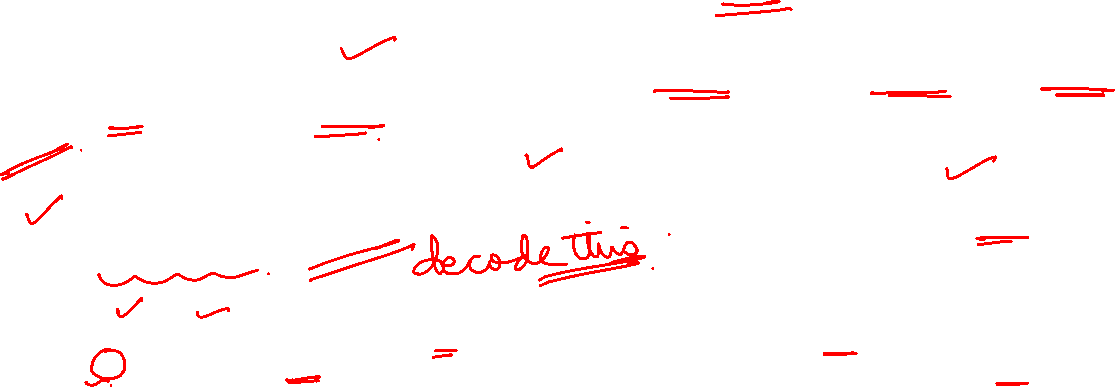 decode this